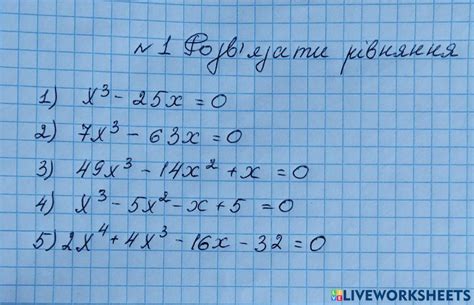 №1 Розв'язати рівняння
1) x³ - 25x = 0
2) 7x³ - 63x = 0
3) 49x³ - 14x² + x = 0
4) x³ - 5x² - x + 5 = 0
5) 2x⁴ + 4x³ - 16x - 32 = 0
LIVEWORKSHEETS